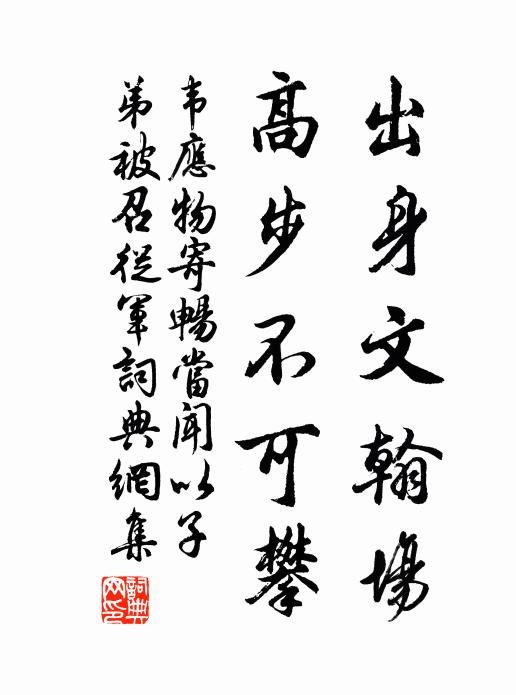 出身文翰場
高步不可攀
韦應物寄暢當聞以子
弟被召從軍詞典網集
詞典
网印